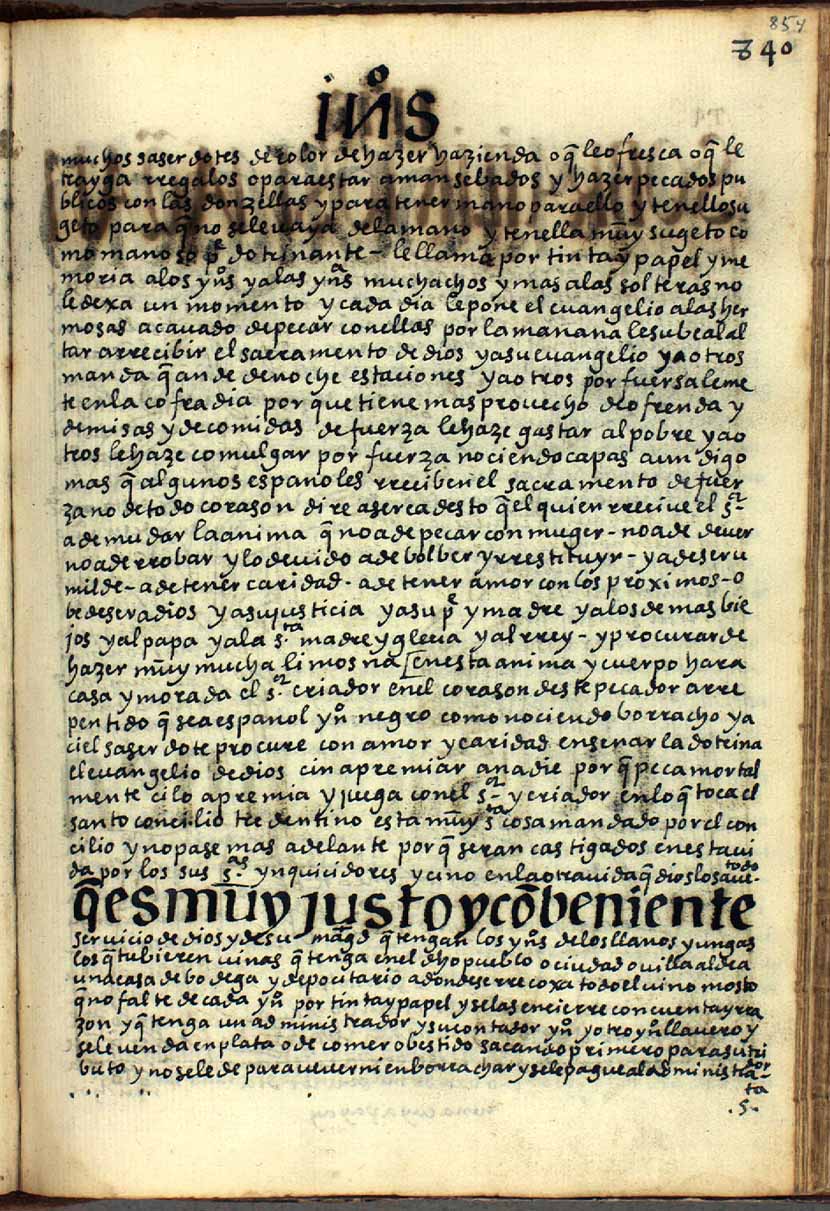 854
840
ỉnºs
muchos saserdotes de color de hazer hazienda o q̃ le ofresca o q̃ le
trayga rregalos o para estar amansebados y hazer pecados pu
blicos con las donzellas y para tener mano para ello y tenello su
geto para q̃ no se le vaya de la mano y tenella mũy sugeto co
mo manoso pᵉ dotrinante - le llama por tinta y papel y me
moria a los ynºs y a las ynªs muchachos y mas a las solteras no
le dexa un momento y cada dia le pone el euangelio a las her
mosas acauado de pecar con ellas por la mañana le sube al al
tar a rrecibir el sacramento de dios y a su euangelio y a otros
manda q̃ ande de noche estaciones y a otros por fuersa le me
te en la cofradia por que tiene mas prouecho de ofrenda y
de misas y de comidas de fuerza le haze gastar al pobre y a o
tros le haze comulgar por fuerza no ciendo capas aun digo
mas q̃ algunos españoles rreciben el sacramento de fuer
za no de todo corason dire aserca desto q̃ el quien rreciue el s.ʳ
a de mudar la anima q̃ no a de pecar con muger - no a de deuer
no a de rrobar y lo deuido a de bolber y rrestituyr - y a de ser u
milde - a de tener caridad - a de tener amor con los proximos - o
bedeser a dios y a su justicia y a su pᵉ y madre y a los demas bie
jos y al papa y a la s.ᵗᵃ madre yglecia y al rrey - y procurar de
hazer mũy mucha limosna [en esta anima y cuerpo hara
casa y morada el s.ʳ criador en el corason deste pecador arre
pentido q̃ sea español ynº negro como no ciendo borracho y a
ci el saserdote procure con amor y caridad enseñar la dotrina
el euangelio de dios cin apremiar a nadie por q̃ peca mortal
mente ci lo apremia y juega con el s.ʳ y criador en lo q̃ toca el
santo concilio tredentino esta mũy s.ᵗᵃ cosa mandado por el con
cilio y no pase mas adelante por q̃ seran castigados en esta ui
da por los sus s.ᵃˢ ynquicidores y cino en la otra uida q̃ dios lo saue todo -
q̃ es mũy justo y cõbeniente
seruicio de dios y de su mag.ᵈ q̃ tengan los ynºs de los llanos yungas
los q̃ tubieren uiñas q̃ tenga en el dho pueblo o ciudad o uilla aldea
una casa de bodega y depocitario adonde se rrecoxa todo el uino mosto
q̃ no falte de cada ynº por tinta y papel y se las encierre con cuenta y rra
zon y q̃ tenga un administrador y su contador ynº y otro ynº llauero y
se le uenda en plata o de comer o bestido sacando primero para su tri
buto y no se le de para ueuer ni enborrachar y se le pague al administrador
ta
.s.